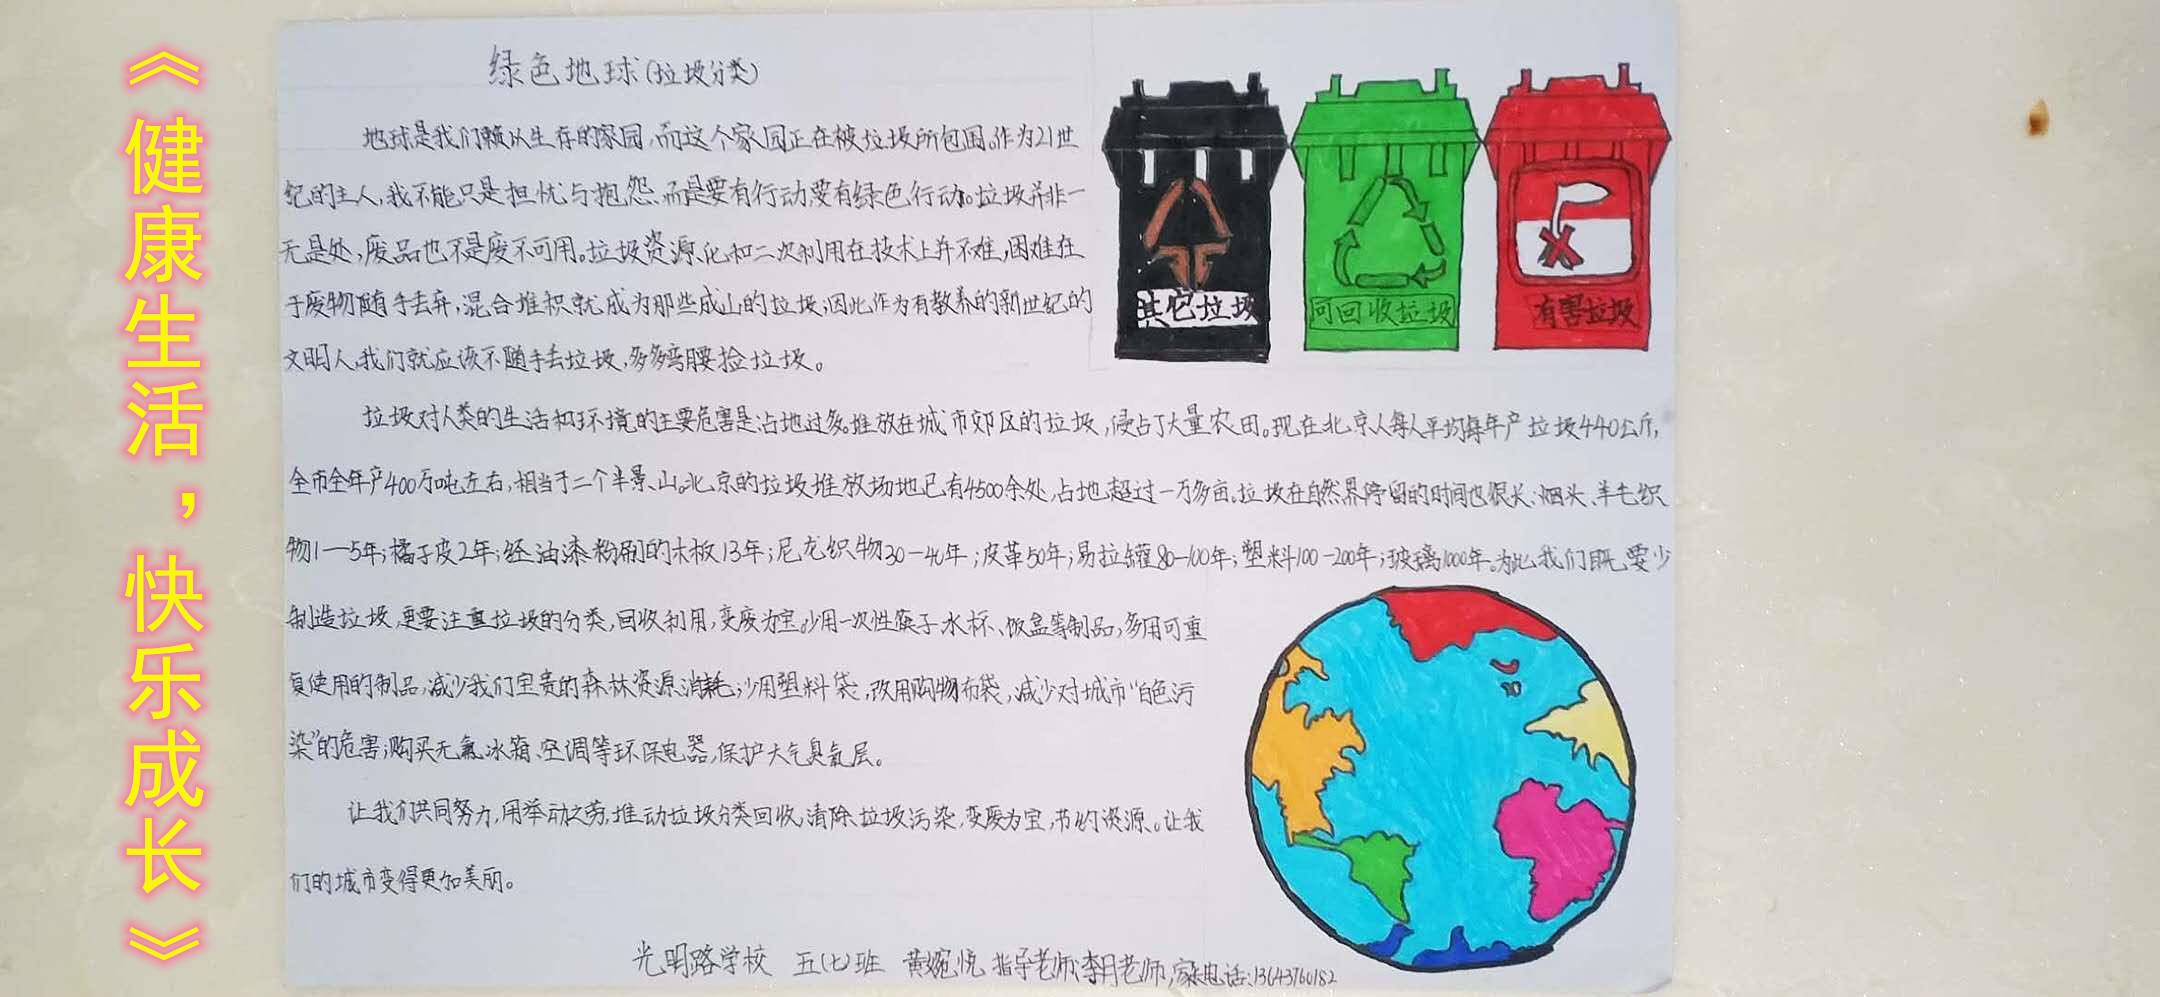 《健康生活，快乐成长》
绿色地球(垃圾分类)
地球是我们赖以生存的家园,而这个家园正在被垃圾所包围。作为21世
纪的主人,我不能只是担忧与抱怨、而是要有行动,要有绿色行动。垃圾并非一
无是处,废品也不是废不可用。垃圾资源化和二次利用在技术上并不难,困难在
于废物随手丢弃,混合堆积就成为那些成山的垃圾,因此作为有教养的新世纪的
文明人,我们就应该不随手丢垃圾,多多弯腰捡垃圾。
其它垃圾
同回收垃圾
有害垃圾
垃圾对人类的生活和环境的主要危害是:占地过多。堆放在城市郊区的垃圾,侵占了大量农田。现在北京人每人平均每年产垃圾440公斤,
全市全年产400万吨左右,相当于二个半景山。北京的垃圾堆放场地已有4500余处,占地超过一万多亩。垃圾在自然界停留的时间也很长:烟头、羊毛织
物1—5年;橘子皮2年;经油漆粉刷的木板13年;尼龙织物30-40年;皮革50年;易拉罐80-100年;塑料100-200年;玻璃1000年。为此,我们既要少
制造垃圾,更要注重垃圾的分类,回收利用,变废为宝。少用一次性筷子、水杯、饭盒等制品,多用可重
复使用的制品,减少我们宝贵的森林资源消耗;少用塑料袋,改用购物布袋,减少对城市"白色污
染"的危害;购买无氟冰箱、空调等环保电器,保护大气臭氧层。
让我们共同努力,用举动之劳,推动垃圾分类回收,清除垃圾污染,变废为宝,节约资源。让我
们的城市变得更加美丽。
光明路学校 五(七)班 黄婉悦 指导老师:李月老师,家长电话:13643760182